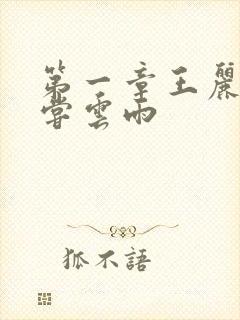 第一章王麗
嘗雲雨
狐不語